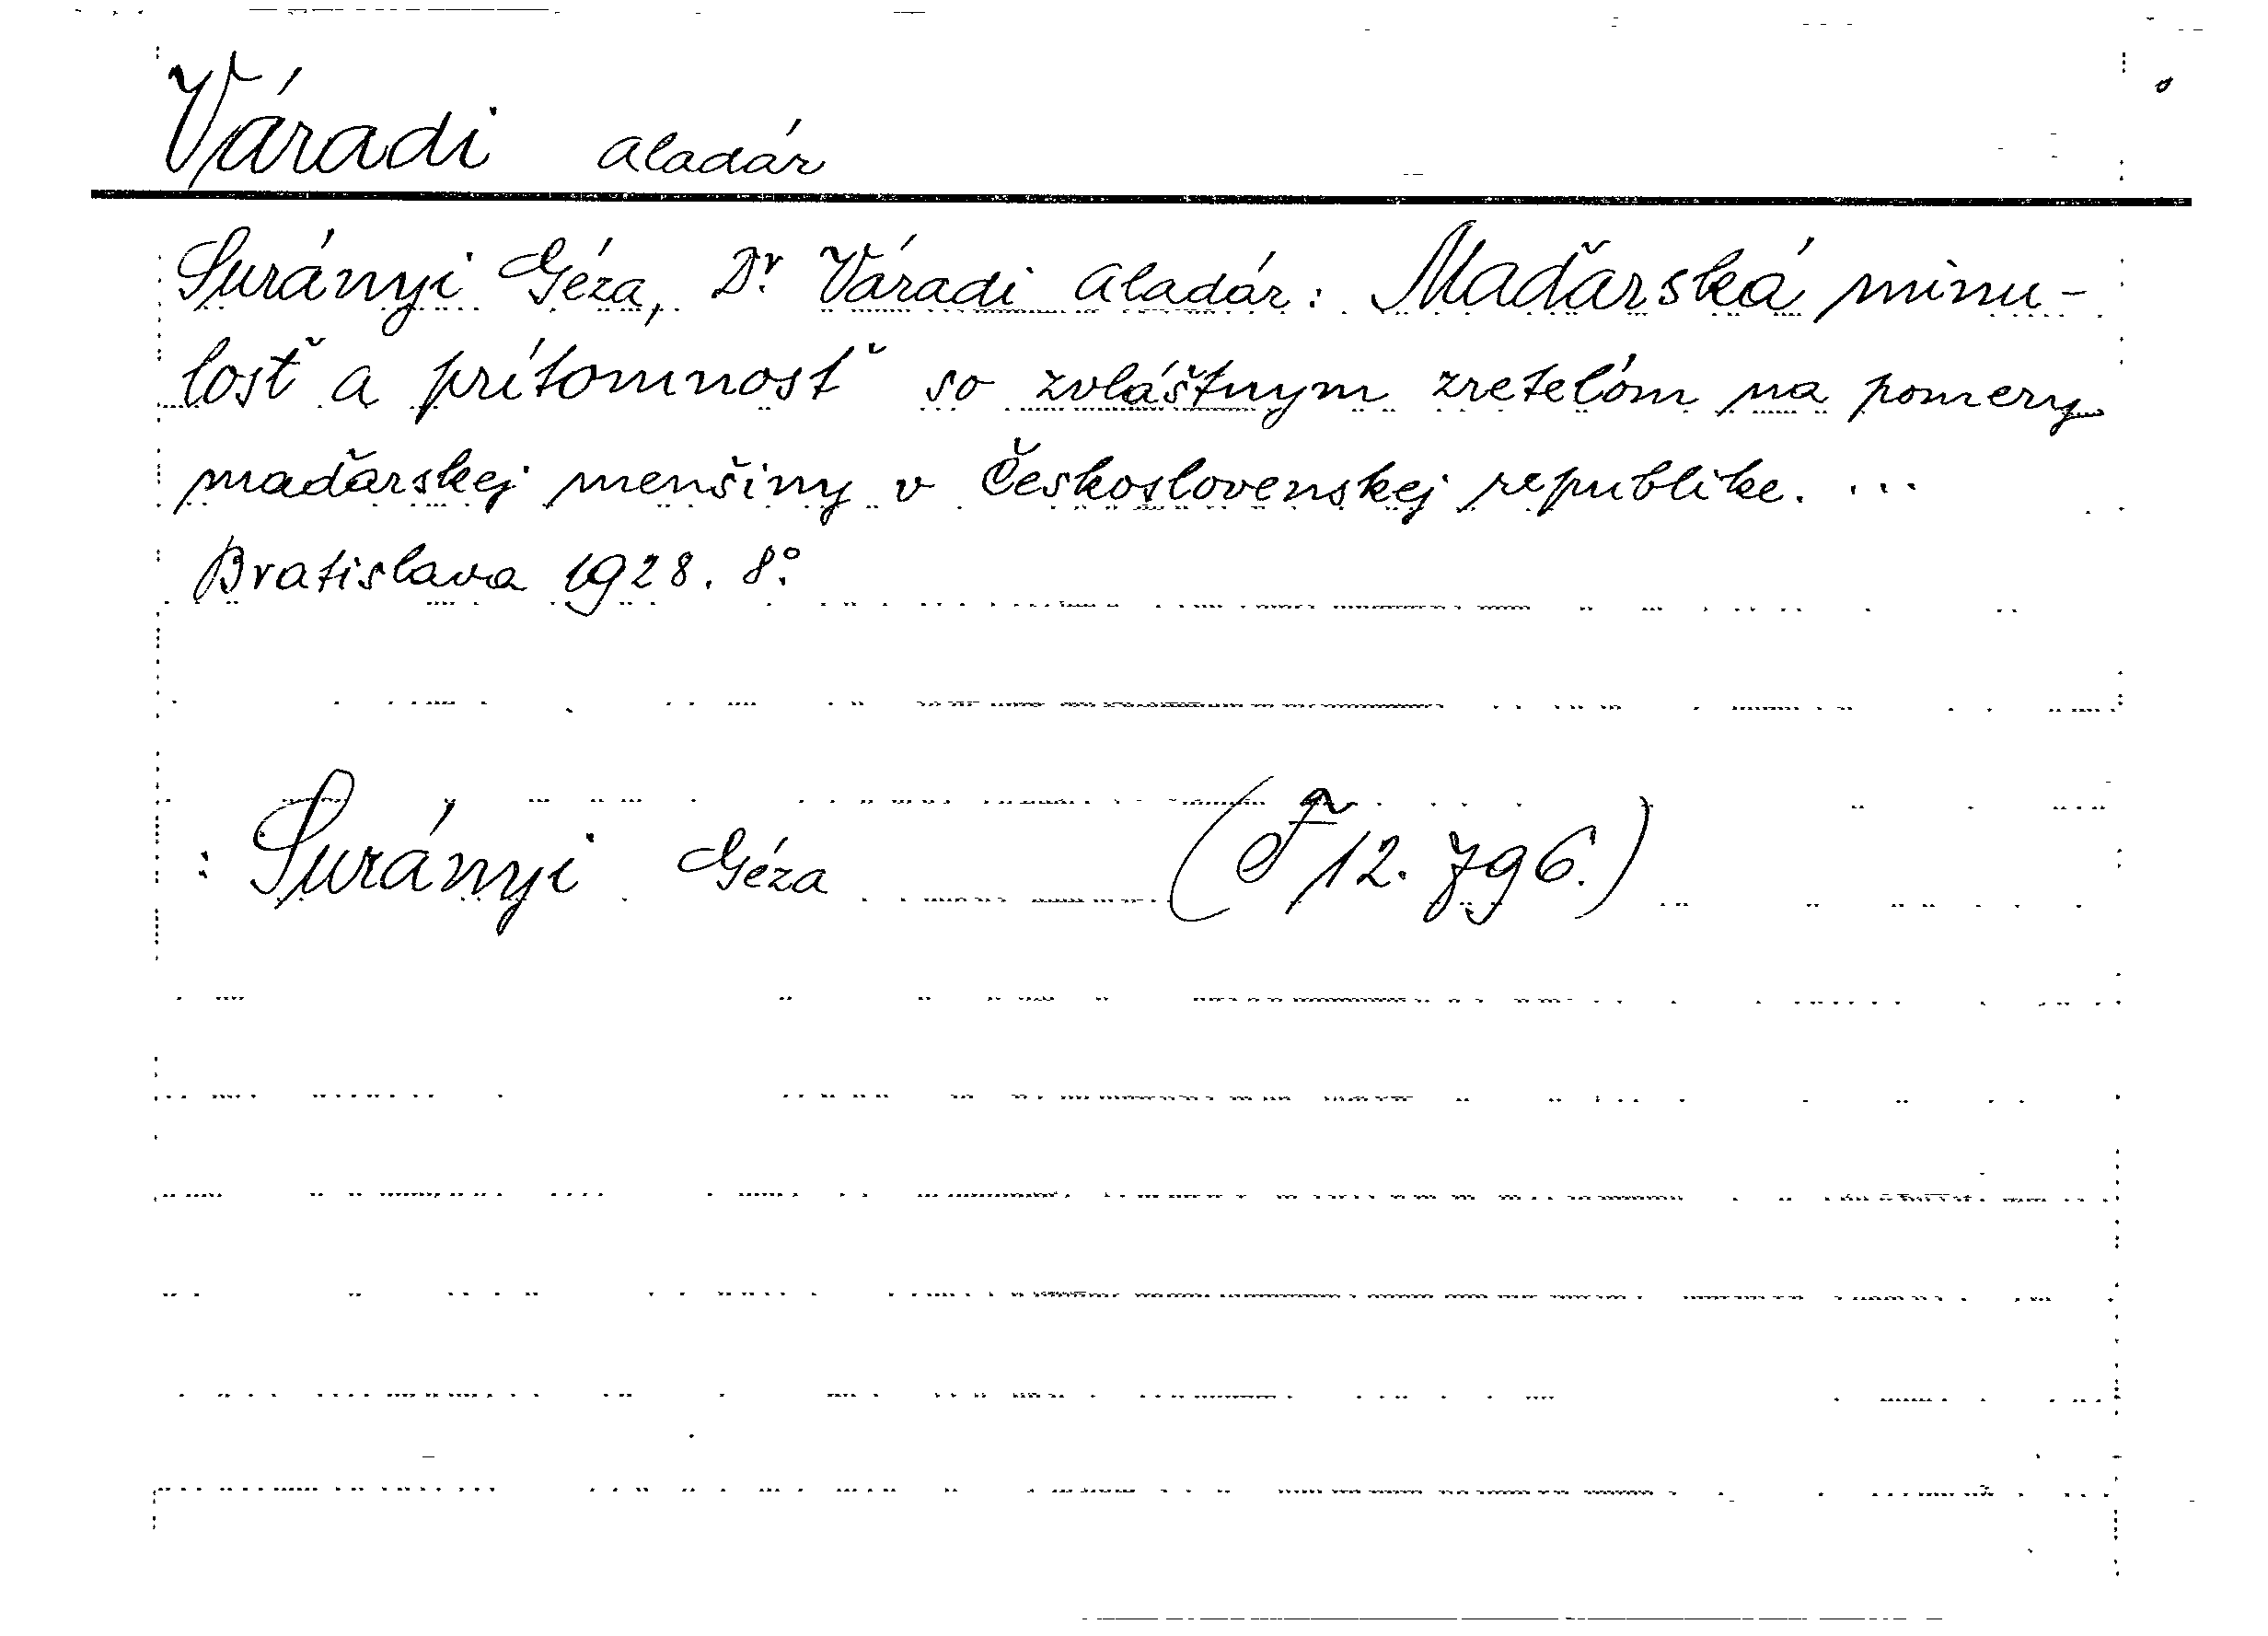 Váradi Aladár
Surányi Géza, Dr. Váradi Aladár: Maďarská minu-
losť a prítomnosť so zvláštnym zreteľom na pomery
maďarskej menšiny v Československej republike. ...
Bratislava 1928. 8°.
: Surányi Géza (F 12.796.)